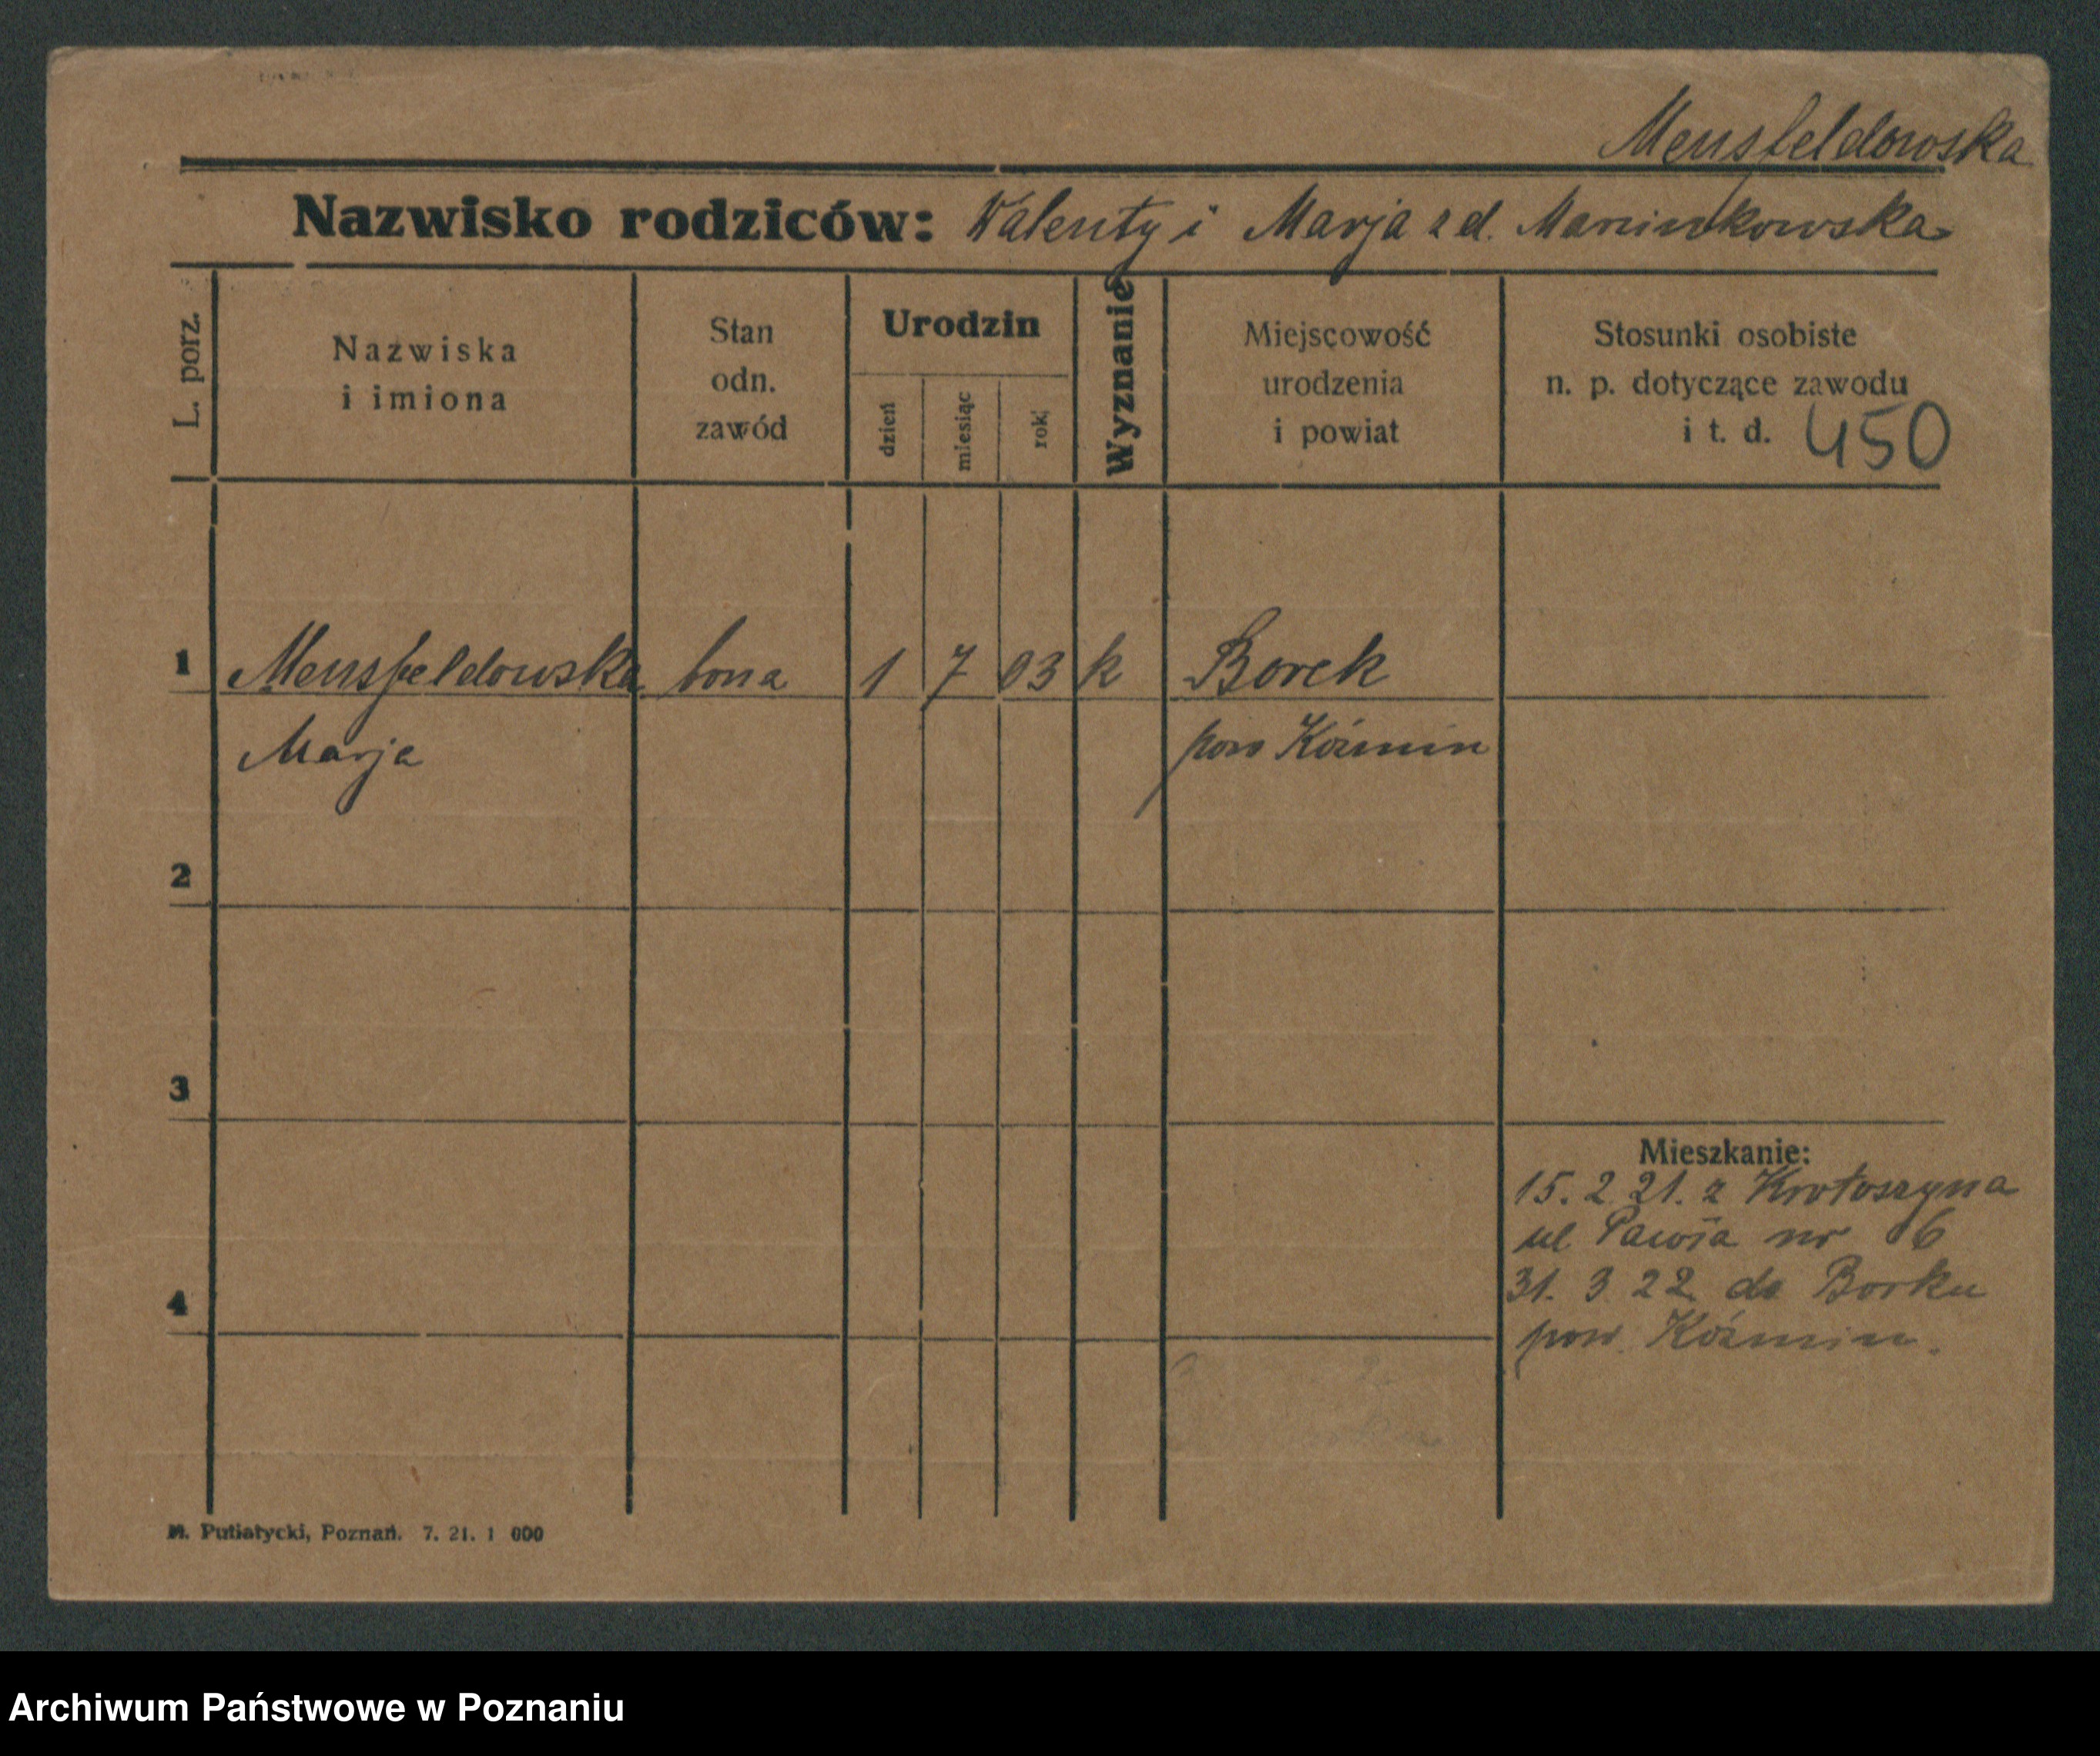 Mensfeldowska
Nazwisko rodziców: Walenty i Marja z d. Marcinkowska
L. porz.
Nazwiska
i imiona
Stan
odn.
zawód
Urodzin
dzień
miesiąc
rok
Wyznanie
Miejscowość
urodzenia
i powiat
Stosunki osobiste
n. p. dotyczące zawodu
i t. d. 450
1 Mensfeldowska bona 1 7 03 k Borek
Marja pow Koźmin
2
3
Mieszkanie:
15. 2 21. z Krotoszyna
ul Pawia nr 6
31. 3 22 do Borku
4
pow. Koźmin.
M. Putiatycki, Poznań. 7. 21. 1 000
Archiwum Państwowe w Poznaniu